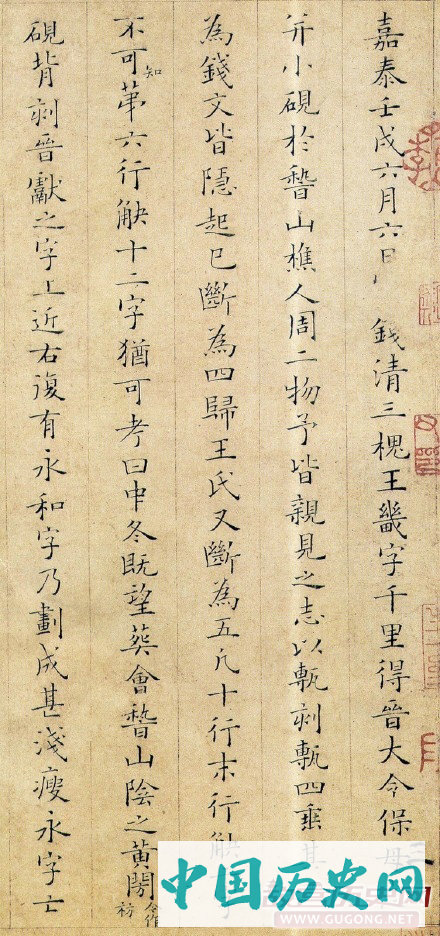 嘉泰壬戌六月六日 錢清三槐王畿字千里得晉大令保母
并小硯於稽山樵人周二物予皆親見之志以甎刻甎四垂其
為錢文皆隱起已斷為四歸王氏又斷為五凡十行末行觖
不可知第六行觖十二字猶可考曰中冬既望葬會稽山陰之黃閍
硯背刻晉獻之字上近右復有永和字乃劃成甚淺瘦永字亡
中国历史网
WWW.GUGONG.NET